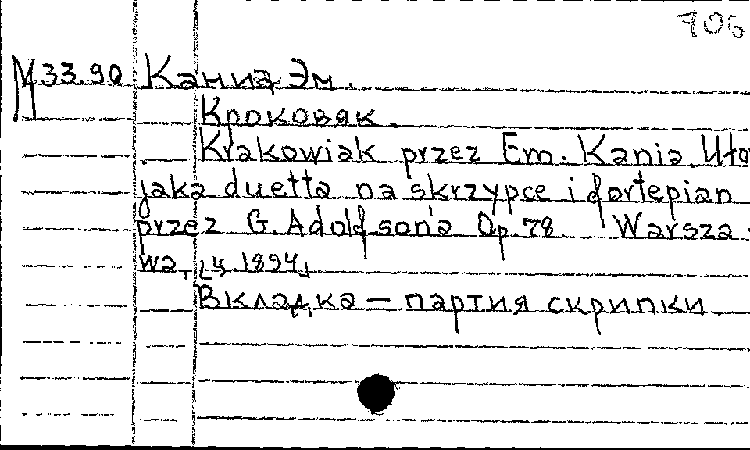 906
М 33.90 Каниа Эм.
Кроковяк.
Krakowiak przez Em. Kania. Uło
jaka duetta na skrzypce i fortepian
przez G. Adolfsona Op. 78. Warsza-
wa,
Вкладка — партия скрипки